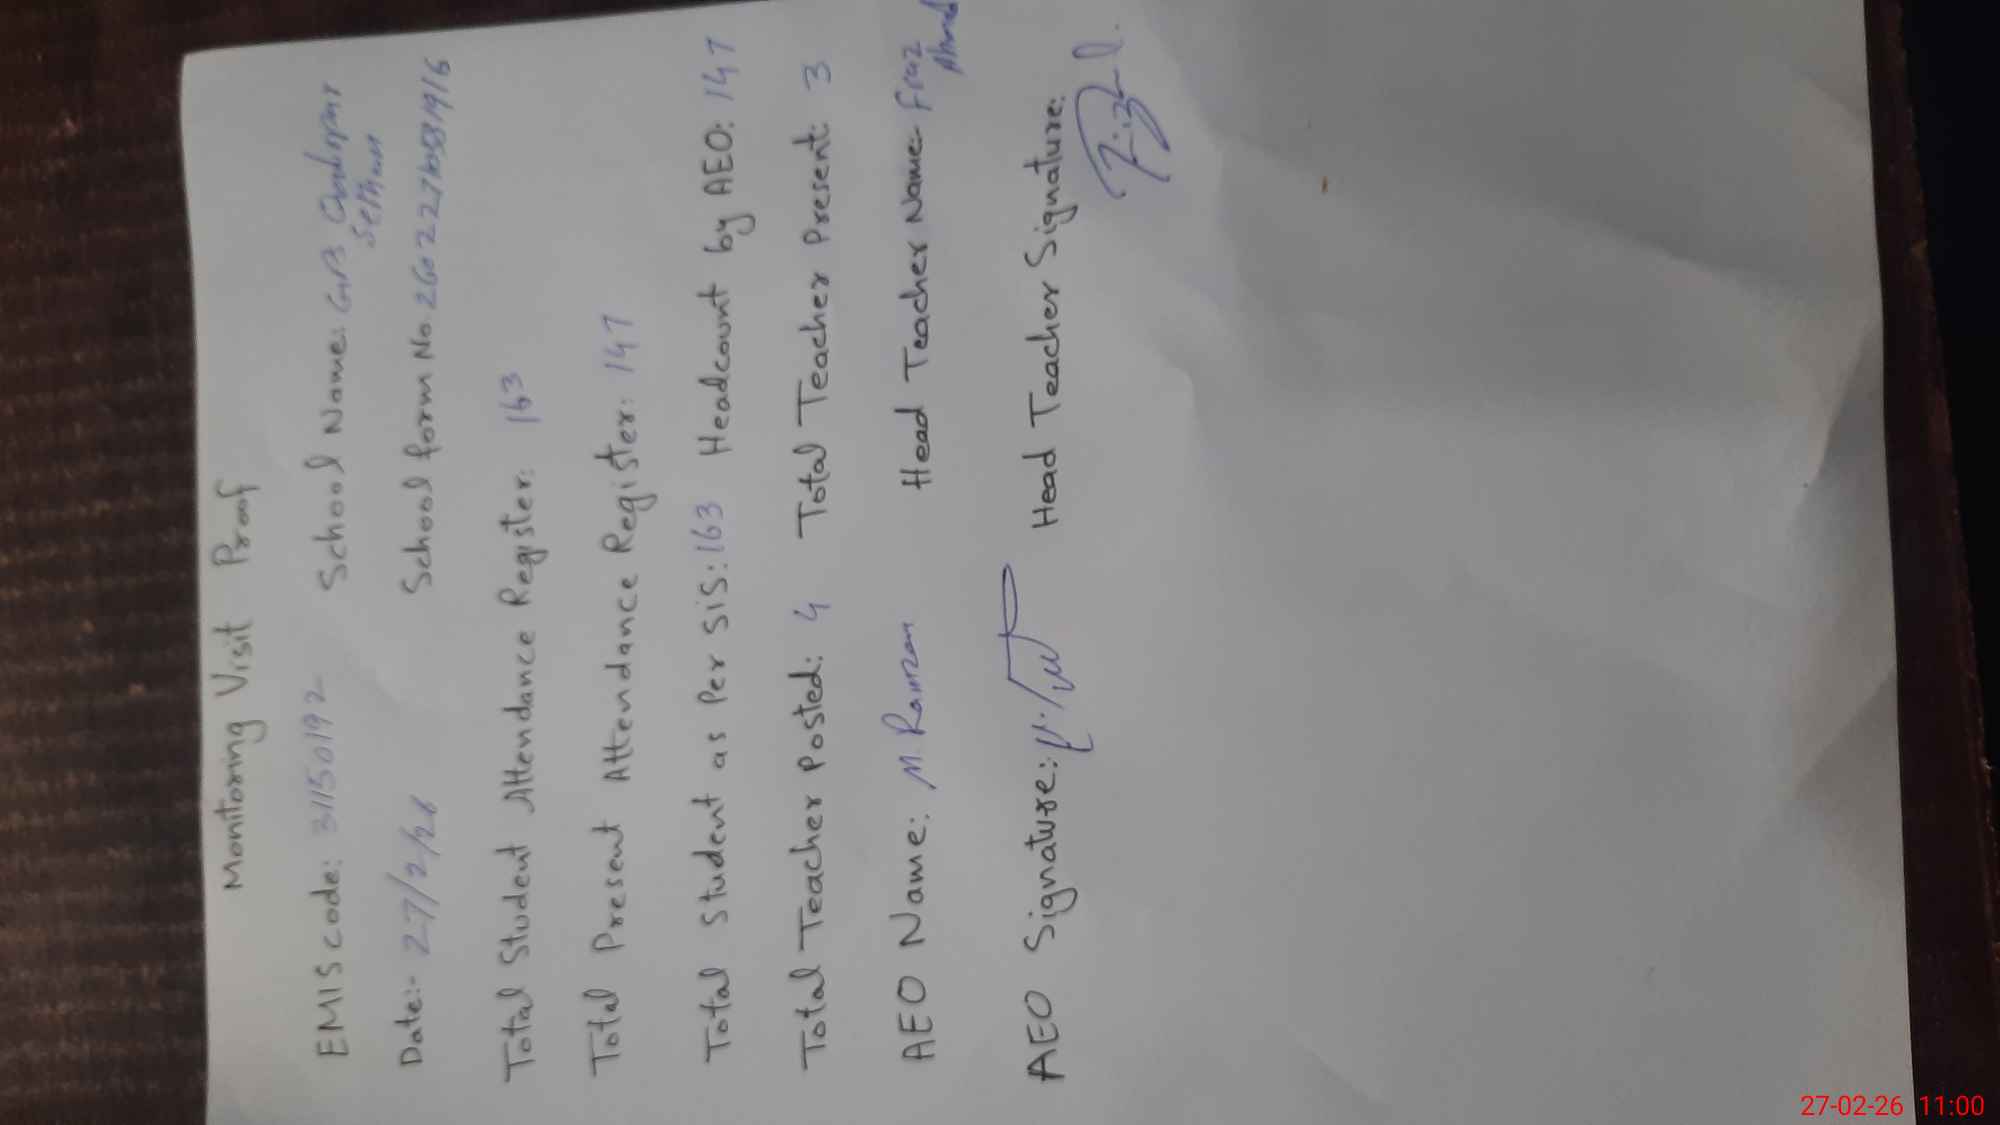 Monitoring Visit Proof
EMIS code: 31150192 School Name:
Date:- 27/2/26 School form No.
Total Student Attendance Register: 163
Total Present Attendance Register: 147
Total Student as Per SIS: 163 Headcount by AEO: 147
Total Teacher Posted: 4 Total Teacher Present: 3
AEO Name: M. Ramzan Head Teacher Name:- Fiaz Ahmad
AEO Signature: Head Teacher Signature:
27-02-26 11:00